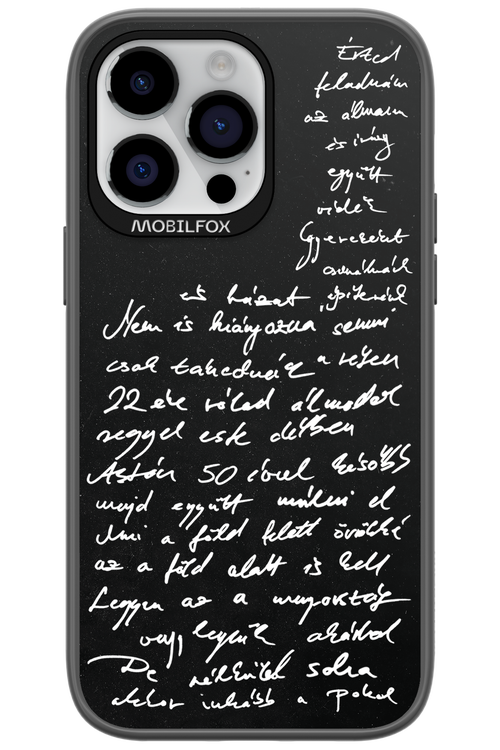 MOBILFOX
Érted
feladnám
az álmaim
és irány
együtt
vidék
Gyerekeket
csinálnánk
és házat építenénk
Nem is hiányozna semmi
csak takaródnánk a
22 éve rólad álmodok
reggel este délben
Aztán 50 évvel később
majd együtt múlni el
Ami a föld felett örökké
az a föld alatt is kell
Legyen az a mennyország
vagy legyünk akárhol
De nélküled soha
akkor inkább a Pokol